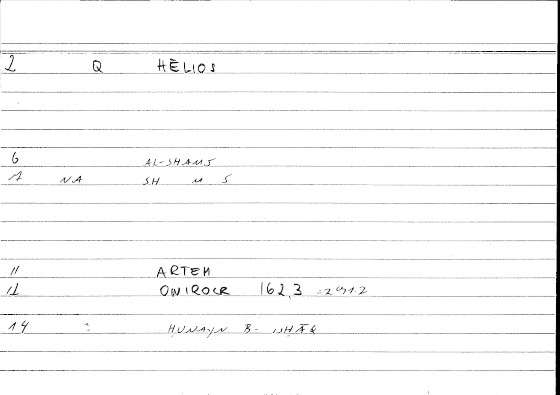 2 Q HĒLIOS
6 AL-SHAMS
1 NA SH M S
11 ARTEM
12 ONIROCR 162,3 = 291.2
14 : ḤUNAYN B- ISḤĀQ